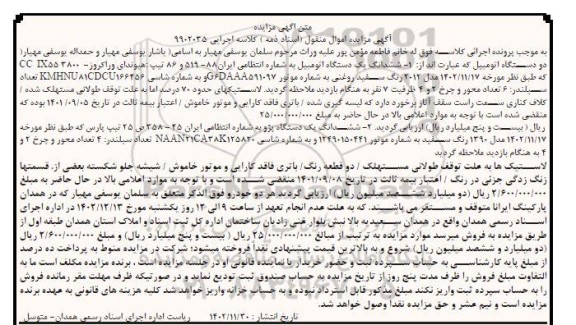 متن آگهی مزایده
آگهی مزایده اموال منقول (اسناد ذمه) کلاسه اجرایی ۹۹۰۲۰۳۵
به موجب پرونده اجرائی کلاسه فوق له خانم فاطمه مؤمن پور علیه وراث مرحوم سلمان یوسفی مهیار به اسامی( یاشار یوسفی مهیار و حمداله یوسفی مهیار)
دو دستگاه اتومبیل که عبارت اند از: ۱- ششدانگ یک دستگاه اتومبیل به شماره انتظامی ایران ۸۸- ۵۱۹ و ۸۶ تیپ هیوندای وراکروز- ۳۸۰۰ CC IX۵۵
که طبق نظر مورخه ۱۴۰۲/۱۱/۱۷ مدل ۲۰۱۲ رنگ سفید روغنی به شماره موتور G۶DAAA۵۹۱۰۹۷ و به شماره شاسی KMHNU۸۱CDCU۱۶۶۲۵۶ تعداد
سیلندر: ۶ تعداد محور و چرخ ۲و ۴ ظرفیت ۷ نفر به هنگام بازدید ملاحظه گردید. لاستیکهای حدود ۷۰ درصد اما به علت توقف طولانی مستهلک شده /
کلاف کناری سمت راست سقف آثار برخورد دارد که لیسه گیری شده / باتری فاقد کارایی و موتور خاموش / اعتبار بیمه ثالث در تاریخ ۱۴۰۱/۰۹/۰۵ بوده که
منقضی شده است با توجه به موارد اعلامی بالا در حال حاضر به مبلغ ۲۵/۰۰۰/۰۰۰/۰۰۰
ریال ( بیست و پنج میلیارد ریال) ارزیابی گردید. ۲- ششدانگ یک دستگاه پژو به شماره انتظامی ایران ۲۵ - ۳۵۸ ص ۲۵ تیپ پارس که طبق نظر مورخه
۱۴۰۲/۱۱/۱۷ مدل ۱۳۹۰ رنگ سفید به شماره موتور ۱۲۴۹۰۱۵۰۴۴۱ و به شماره شاسی NAAN۲۱CA۳AK۱۲۵۸۳۰ تعداد سیلندر: ۴ تعداد محور و چرخ ۲ و
۴ به هنگام بازدید ملاحظه گردید
لاستیک ها به علت توقف طولانی مستهلک / دو قطعه رنگ/ باتری فاقد کارایی و موتور خاموش / شیشه جلو شکسته بعضی از قسمتها
زنگ زدگی جزئی در رنگ / اعتبار بیمه ثالث در تاریخ ۱۴۰۱/۰۹/۰۸ منقضی شده است و با توجه به موارد اعلامی بالا در حال حاضر به مبلغ
۲/۶۰۰/۰۰۰/۰۰۰ ریال (دو میلیارد و ششصد میلیون ریال) ارزیابی گردید هر دو خودرو فوق الذکر متعلق به سلمان یوسفی مهیار که در همدان
پارکینگ ایرانا متوقف و مستقر می باشند که به علت عدم انجام تعهد از ساعت ۹ الی ۱۲ روز یکشنبه مورخ ۱۴۰۲/۱۲/۱۳ در اداره اجرای
اسناد رسمی همدان واقع در همدان سعیدیه بالا نبش بلوار غنی زادیان ساختمان اداره کل ثبت اسناد و املاک استان همدان طبقه اول از
طریق مزایده به فروش میرسد موارد مزایده به ترتیب از مبالغ ۲۵/۰۰۰/۰۰۰/۰۰۰ ریال (بیست و پنج میلیارد ریال) و مبلغ ۲/۶۰۰/۰۰۰/۰۰۰ ریال
(دو میلیارد و ششصد میلیون ریال) شروع و به بالاترین قیمت پیشنهادی نقدا فروخته میشود: شرکت در مزایده منوط به پرداخت ده درصد
از مبلغ پایه کارشناسی به حساب سپرده ثبت و حضور خریدار یا نماینده قانونی او در جلسه مزایده است . برنده مزایده مکلف است ما به
التفاوت مبلغ فروش را ظرف مدت پنج روز از تاریخ مزایده به حساب صندوق ثبت تودیع نماید و در صورتیکه ظرف مهلت مقرر مانده فروش
را به حساب سپرده ثبت واریز نکند مبلغ مذکور قابل استرداد نبوده و به حساب خزانه واریز خواهد شد کلیه هزینه های قانونی به عهده برنده
مزایده است و نیم عشر و حق مزایده نقداً وصول خواهد شد.
تاریخ انتشار : ۱۴۰۲/۱۱/۳۰ ریاست اداره اجرای اسناد رسمی همدان- متوسل